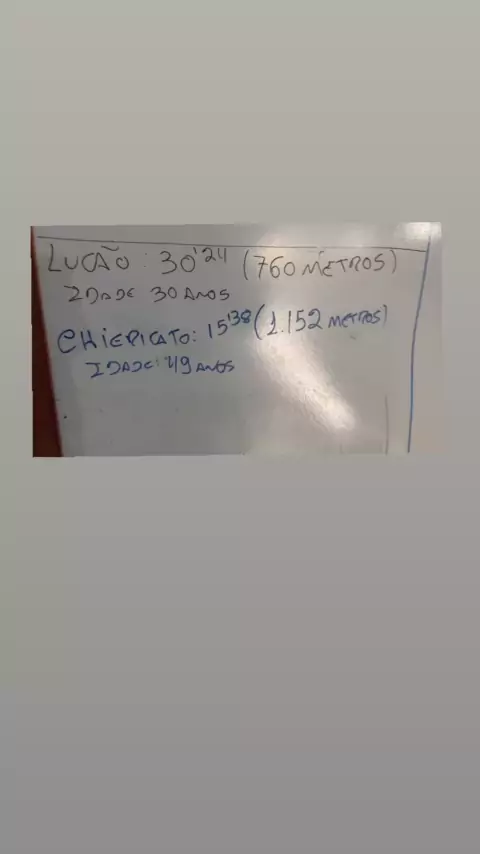 LUCÃO: 30'24 (760 METROS)
IDADE 30 ANOS
CHIERICATO: 15'38 (1.152 METROS)
IDADE: 49 ANOS